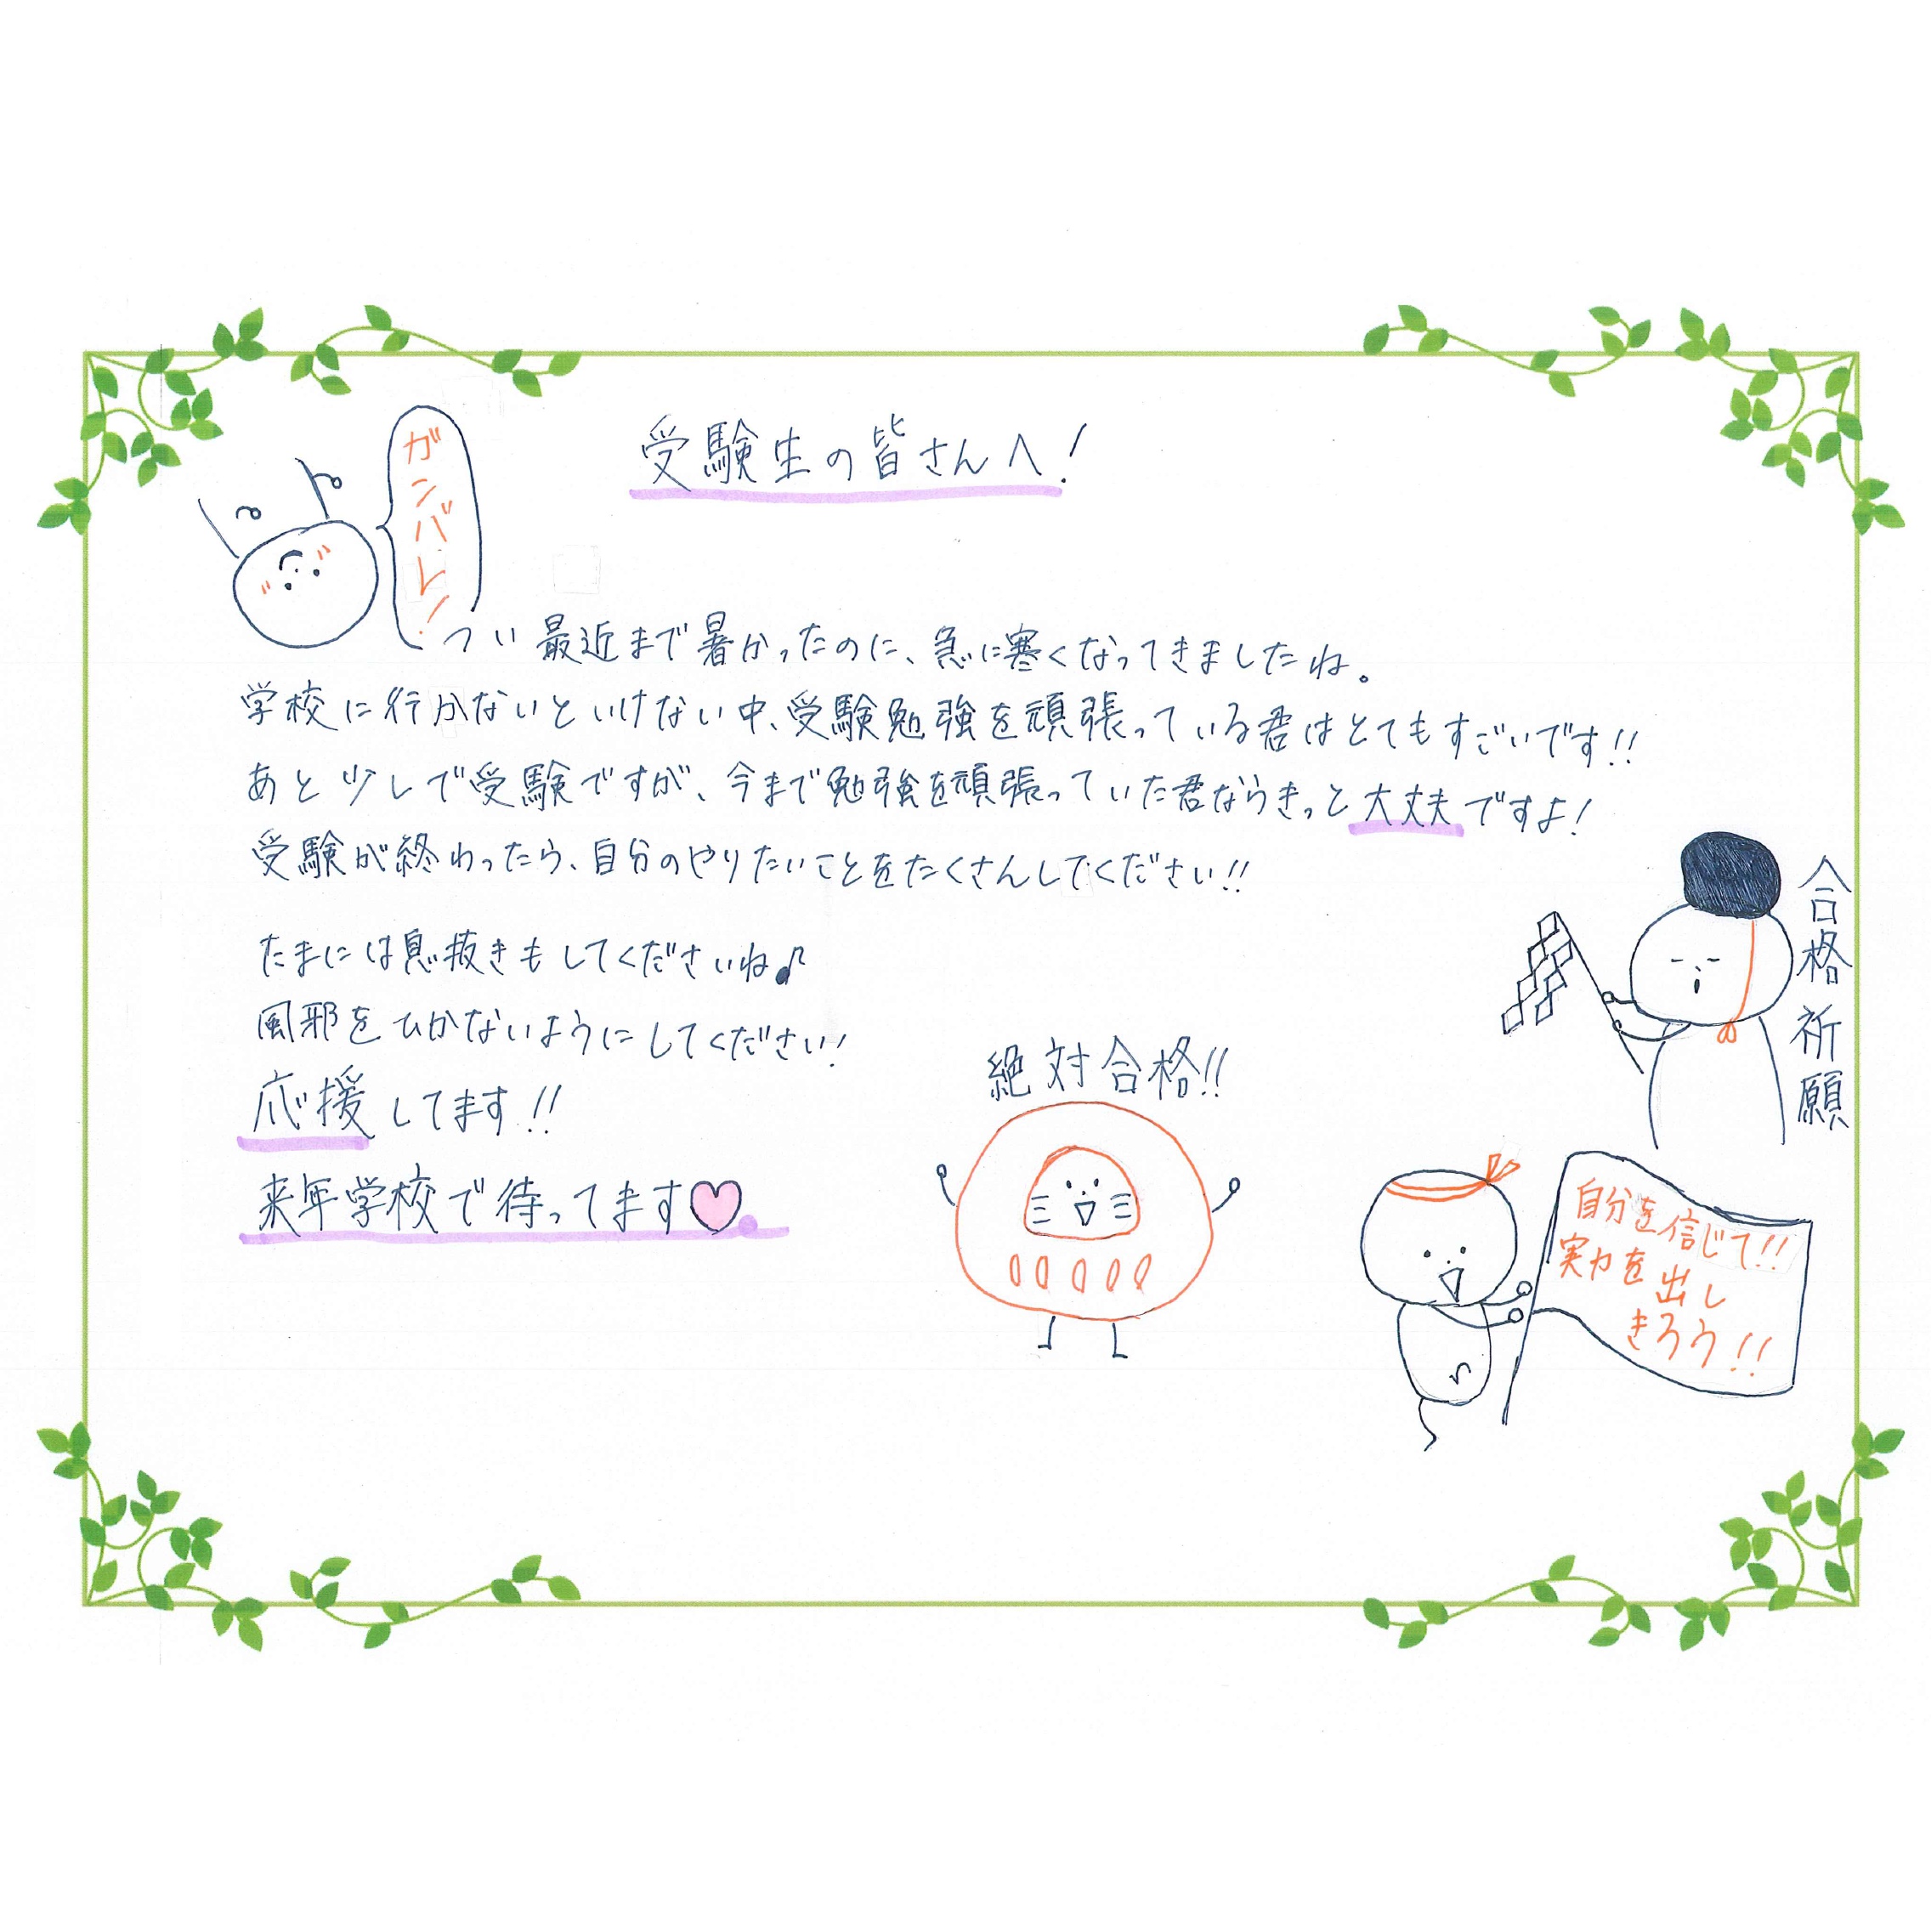 受験生の皆さんへ!
ガンバレ!
つい最近まで暑かったのに、急に寒くなってきましたね。
学校に行かないといけない中、受験勉強を頑張っている君はとてもすごいです!!
あと少しで受験ですが、今まで勉強を頑張っていた君ならきっと大丈夫ですよ!
受験が終わったら、自分のやりたいことをたくさんしてください!!
たまには息抜きもしてくださいね♪
風邪をひかないようにしてください!
応援してます!!
来年学校で待ってます♡
絶対合格!!
合格祈願
自分を信じて!!
実力を出し
きろう!!